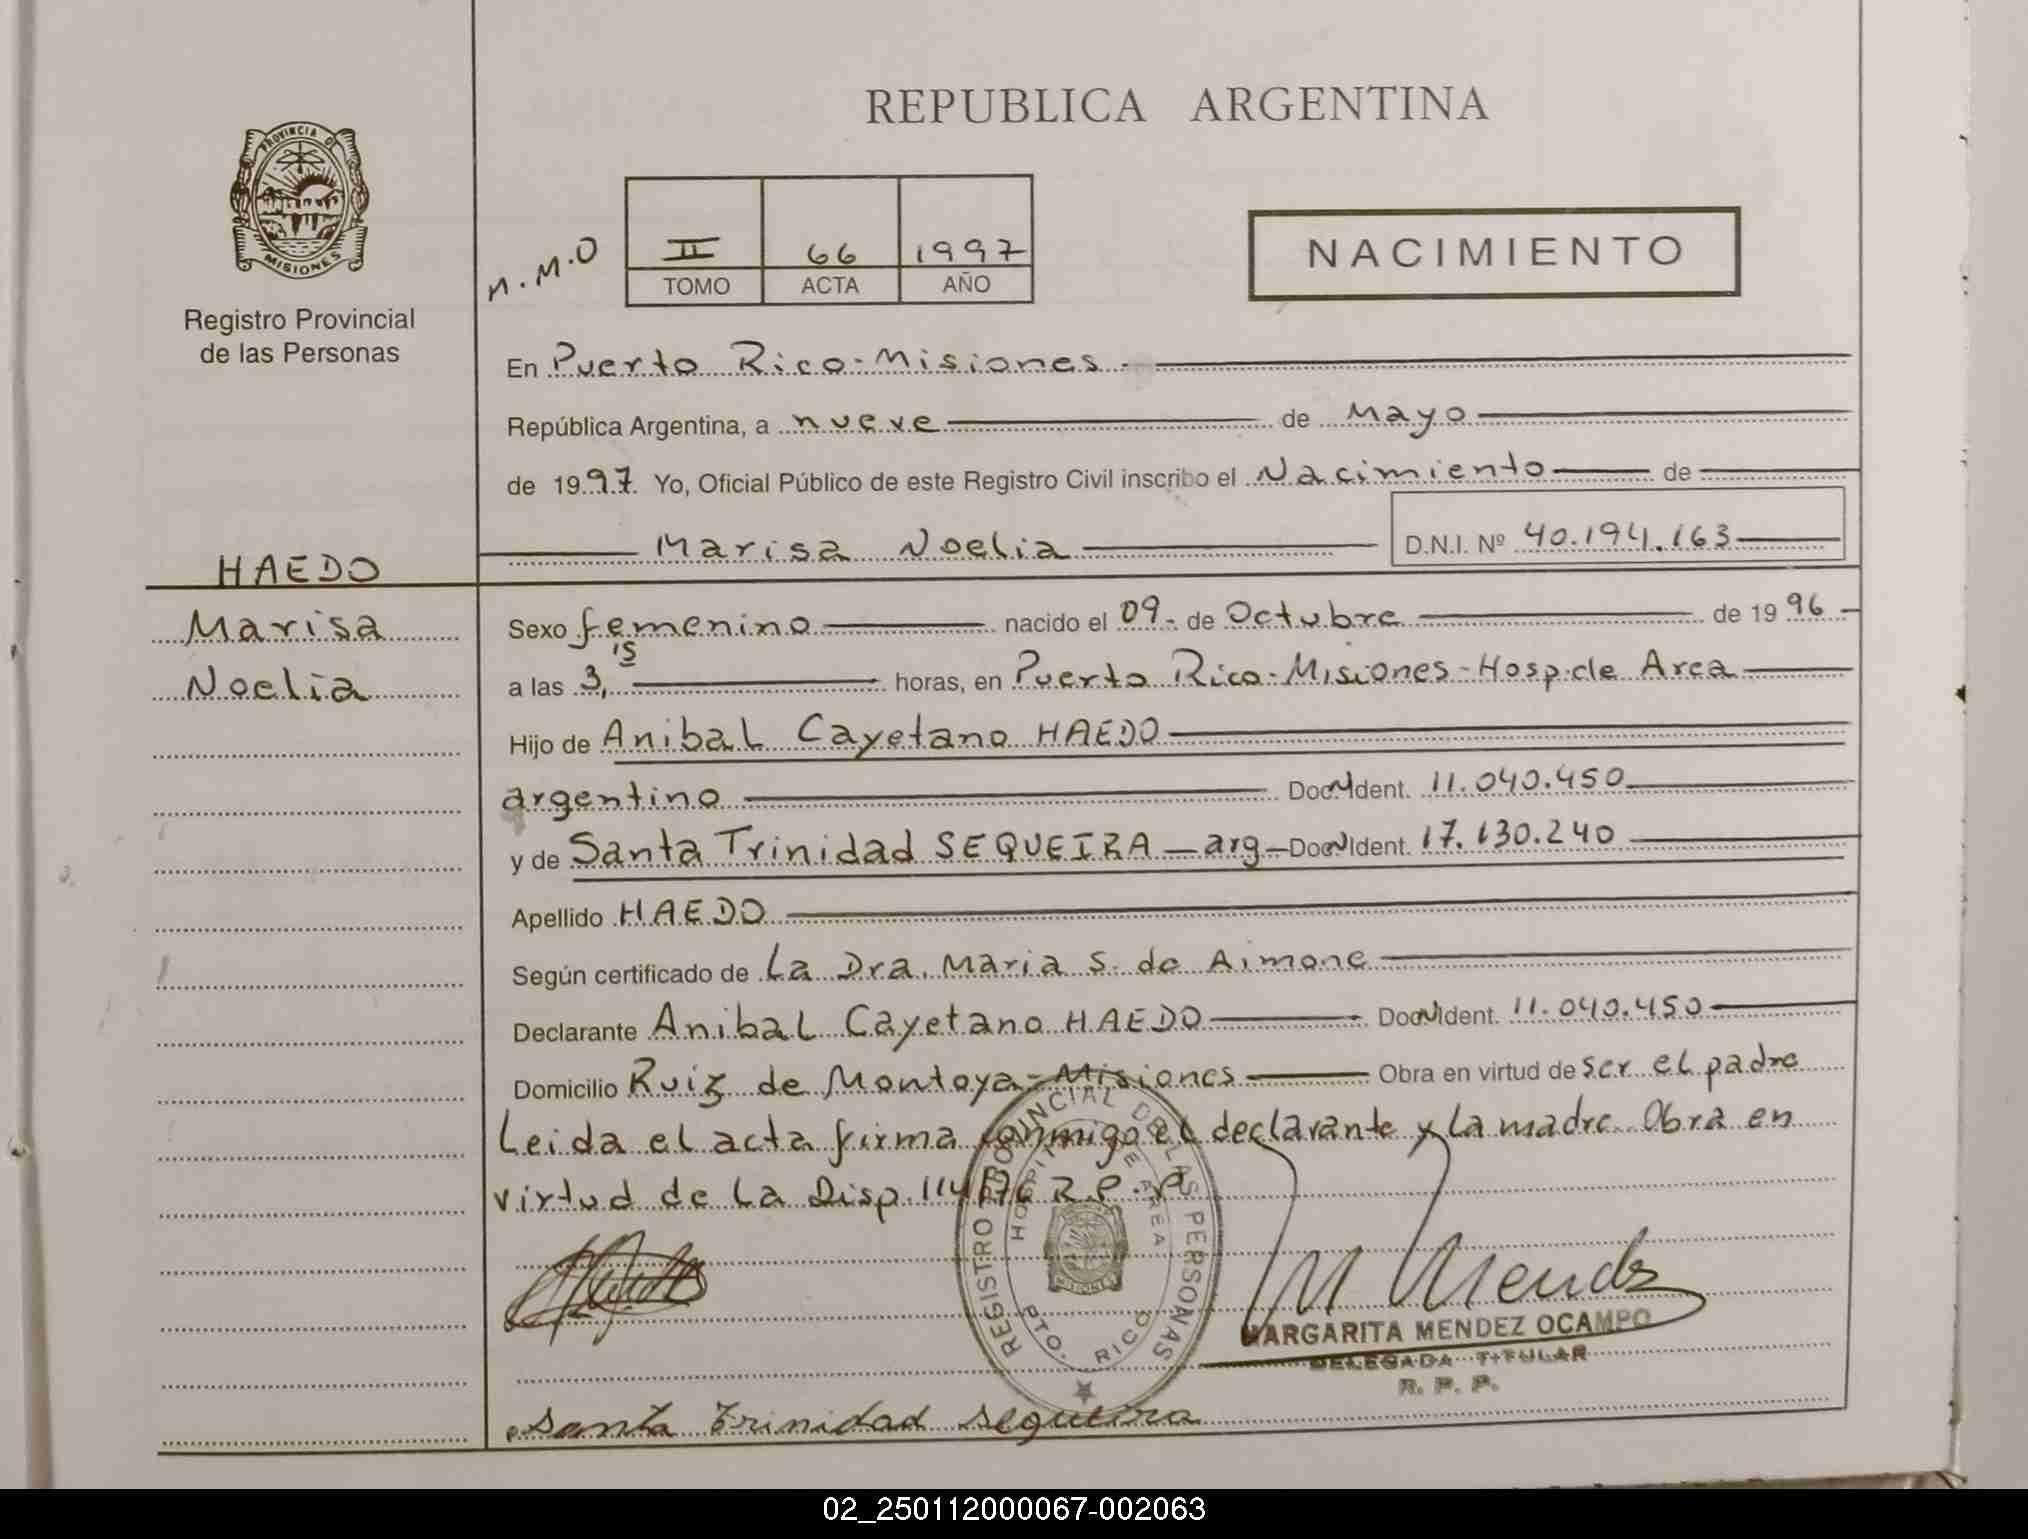 REPUBLICA ARGENTINA
PROVINCIA DE
MISIONES
Registro Provincial
de las Personas
M.M.O
II 66 1997
TOMO ACTA AÑO
NACIMIENTO
En Puerto Rico-Misiones
República Argentina, a nueve de Mayo
de 1997. Yo, Oficial Público de este Registro Civil inscribo el Nacimiento de
Marisa Noelia D.N.I. Nº 40.194.163
HAEDO
Marisa
Noelia
Sexo femenino nacido el 09- de Octubre de 1996
a las 3,15 horas, en Puerto Rico-Misiones-Hosp.de Area
Hijo de Anibal Cayetano HAEDO
argentino Doc.N.Ident. 11.040.450
y de Santa Trinidad SEQUEIRA - arg - Doc.N.Ident. 17.130.240
Apellido HAEDO
Según certificado de La Dra. Maria S. de Aimone
Declarante Anibal Cayetano HAEDO Doc.N.Ident. 11.040.450
Domicilio Ruiz de Montoya-Misiones Obra en virtud de ser el padre
Leida el acta firma conmigo el declarante y la madre Obra en
virtud de la Disp. 114/76 R.P.P
REGISTRO PROVINCIAL DE LAS PERSOANAS
HOSPITAL DE AREA
MISIONES
PTO. RICO
M Mendz
MARGARITA MENDEZ OCAMPO
DELEGADA TITULAR
R. P. P.
Santa Trinidad Sequeira
02_250112000067-002063